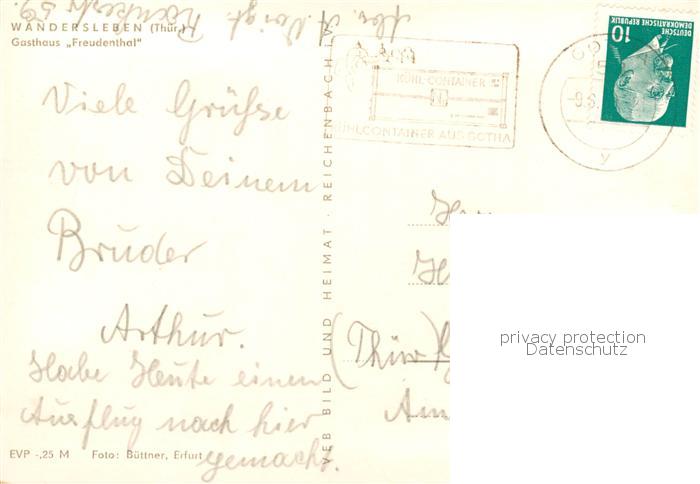 WANDERSLEBEN (Thür.)
Gasthaus „Freudenthal"
Viele Grüsse
von Deinem
Bruder
Arthur.
Habe Heute einen
Ausflug nach hier
gemacht.
EVP -,25 M Foto: Büttner, Erfurt
VEB BILD UND HEIMAT · REICHENBACH I. V.
KÜHL-CONTAINER
KÜHLCONTAINER AUS GOTHA
DEUTSCHE
DEMOKRATISCHE REPUBLIK
10
(Thür)
privacy protection
Datenschutz